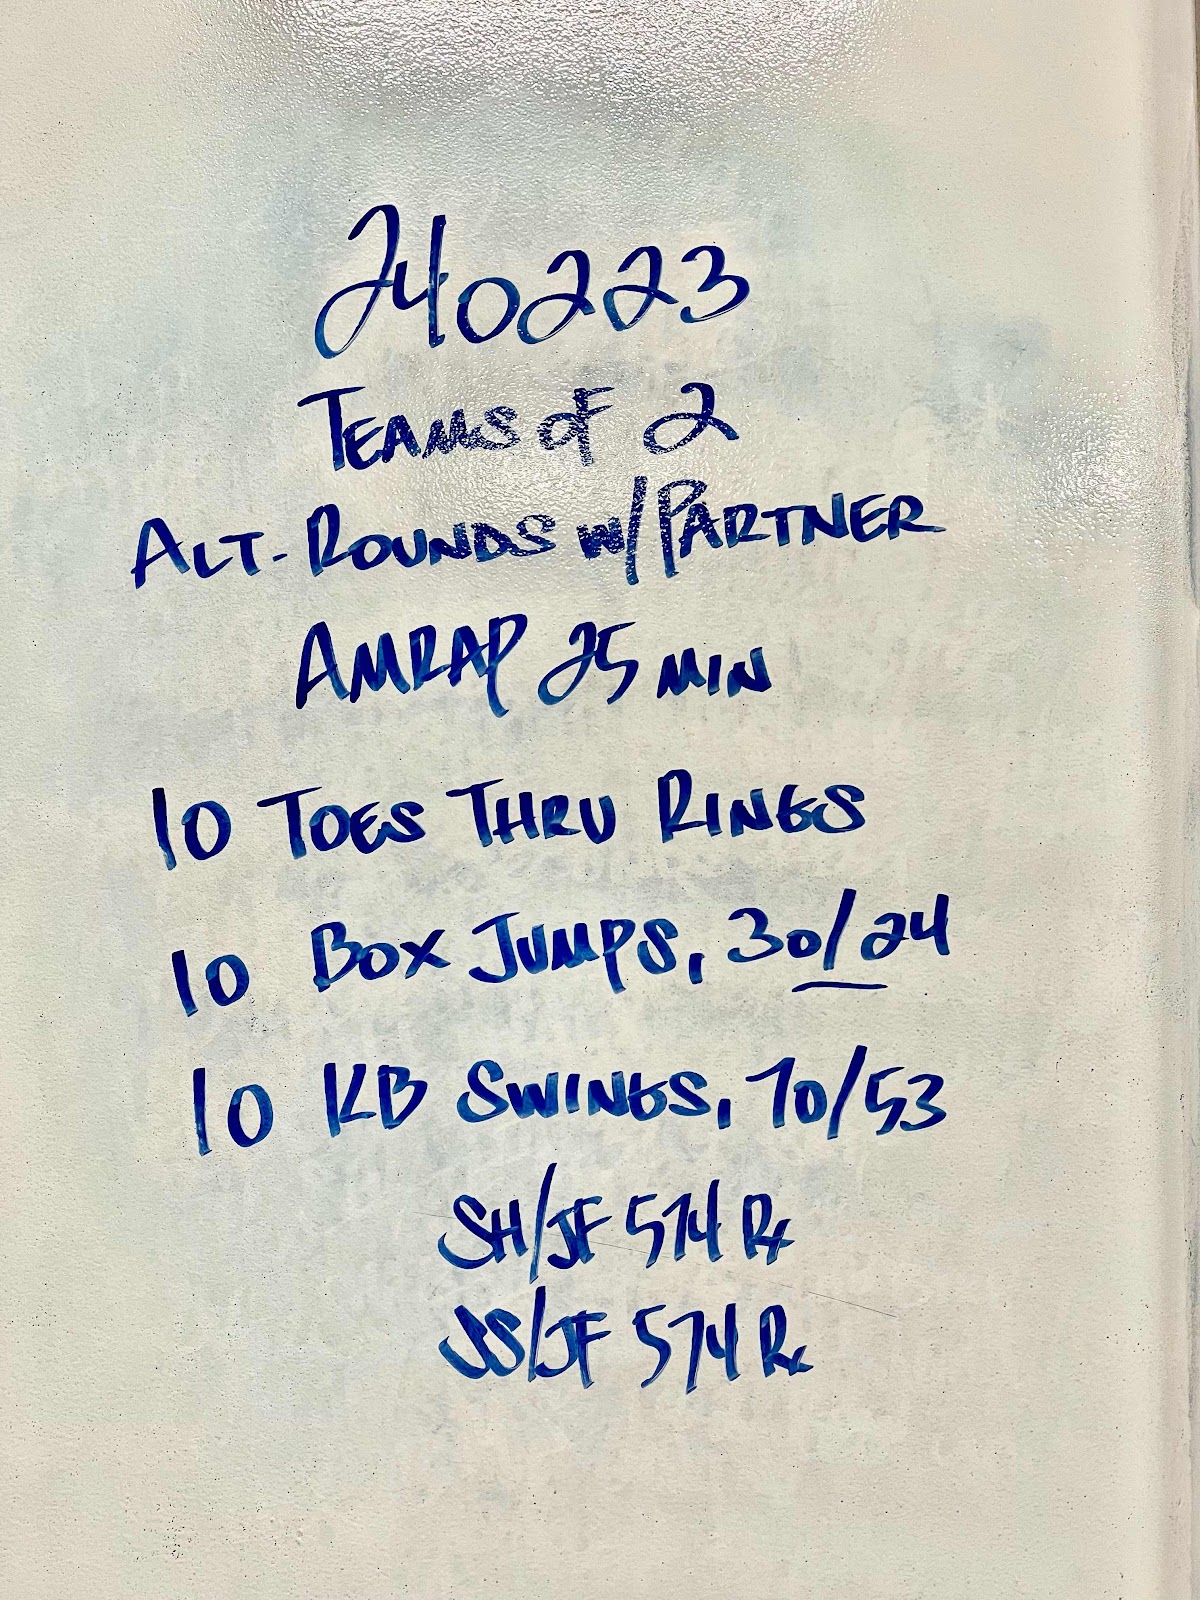 240223
TEAMS OF 2
ALT. ROUNDS W/PARTNER
AMRAP 25 MIN
10 TOES THRU RINGS
10 BOX JUMPS, 30/24
10 KB SWINGS, 70/53
SH/JF 574 Rx
JS/JF 574 Rx